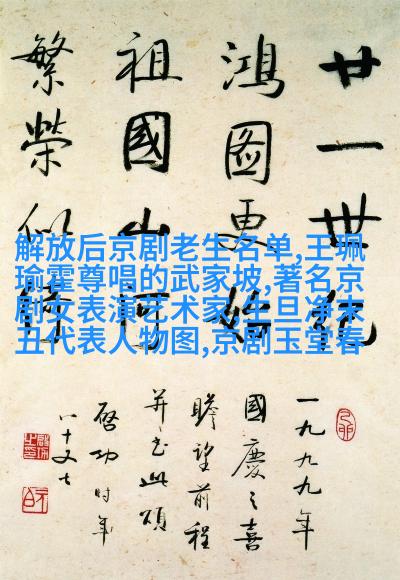 廿一世紀
鴻圖更始
祖國山河
繁榮似
解放后京剧老生名单,王珮
瑜霍尊唱的武家坡,著名京
剧女表演艺术家,生旦净末
丑代表人物图,京剧玉堂春
一九九九年
國慶之喜
瞻望前程
并書此頌
啓功時年
八十又七